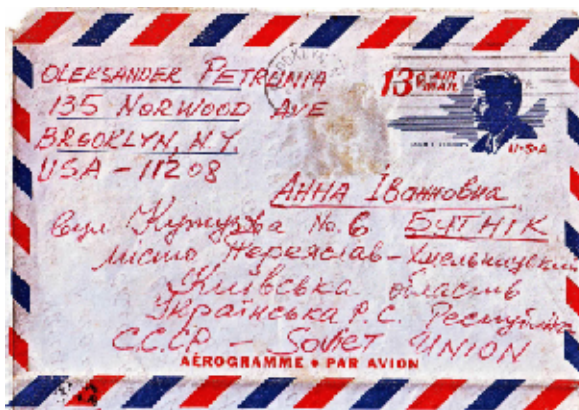 OLEKSANDER PETRUNIA
135 NORWOOD AVE
BROOKLYN, N.Y.
USA - 11208
13¢ AIR MAIL
U·S·A
АННА Івановна
вул Кутузова No. 6 БУТНІК
місто Переяслав-Хмельницький
Київська область
Українська Р.С. Республіка
С.С.С.Р. - Soviet UNION
AÉROGRAMME • PAR AVION